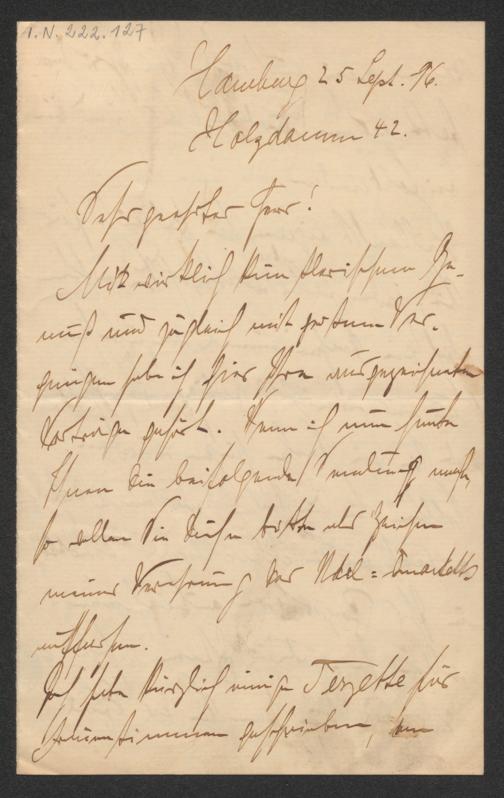 I. N. 222.127
Hamburg 25 Sept. 96.
Holzdamm 42.
Sehr geehrter Herr!
Mit wirklich künstlerischem Ge-
nuß und zugleich mit hohem Ver-
gnügen habe ich hier Ihre ausgezeichneten
Vorträge gehört. Wenn ich nun heute
Ihnen die beifolgende Sendung mache,
so wollen Sie diese bitte als Zeichen
meiner Verehrung des Udel-Quartetts
auffassen.
Ich habe kürzlich einige Terzette für
Männerstimmen geschrieben, von